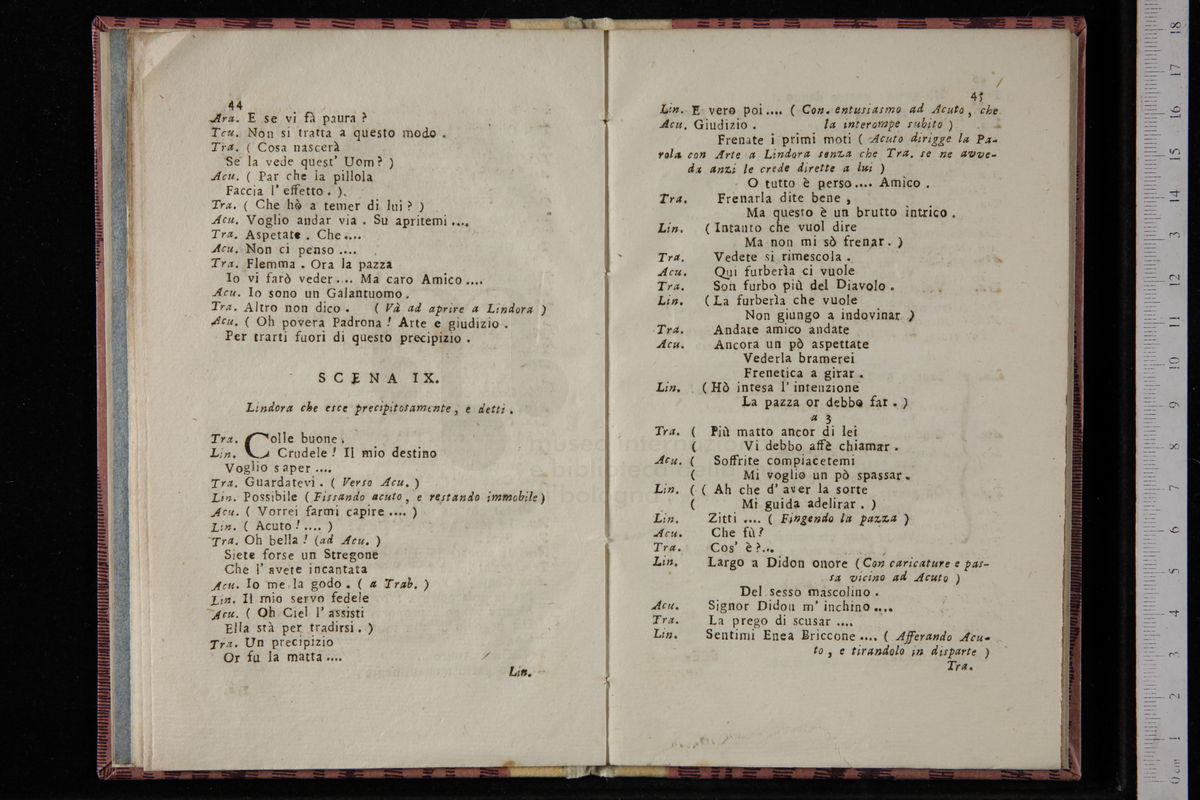 44
Ara. E se vi fà paura ?
Tcu. Non si tratta a questo modo .
Tra. ( Cosa nascerà
Se la vede quest' Uom ? )
Acu. ( Par che la pillola
Faccia l' effetto . ).
Tra. ( Che hò a temer di lui ? )
Acu. Voglio andar via . Su apritemi ....
Tra. Aspetate . Che ....
Acu. Non ci penso ....
Tra. Flemma . Ora la pazza
Io vi farò veder .... Ma caro Amico ....
Acu. Io sono un Galantuomo .
Tra. Altro non dico . ( Và ad aprire a Lindora )
Acu. ( Oh povera Padrona ! Arte e giudizio .
Per trarti fuori di questo precipizio .
SCENA IX.
Lindora che esce precipitosamente , e detti .
Tra. Colle buone .
Lin. Crudele ! Il mio destino
Voglio saper ....
Tra. Guardatevi . ( Verso Acu. )
Lin. Possibile ( Fissando acuto , e restando immobile )
Acu. ( Vorrei farmi capire .... )
Lin. ( Acuto ! .... )
Tra. Oh bella ! (ad Acu. )
Siete forse un Stregone
Che l' avete incantata
Acu. Io me la godo . ( a Trab. )
Lin. Il mio servo fedele
Acu. ( Oh Ciel l' assisti
Ella stà per tradirsi . )
Tra. Un precipizio
Or fu la matta ....
Lin.
45
Lin. E vero poi .... ( Con. entusiasmo ad Acuto , che
Acu. Giudizio . la interompe subito )
Frenate i primi moti ( Acuto dirigge la Pa-
rola con Arte a Lindora senza che Tra. se ne avve-
da anzi le crede dirette a lui )
O tutto è perso .... Amico .
Tra. Frenarla dite bene ,
Ma questo è un brutto intrico .
Lin. ( Intanto che vuol dire
Ma non mi sò frenar . )
Tra. Vedete si rimescola .
Acu. Qui furberìa ci vuole
Tra. Son furbo più del Diavolo .
Lin. ( La furberìa che vuole
Non giungo a indovinar )
Tra. Andate amico andate
Acu. Ancora un pò aspettate
Vederla bramerei
Frenetica a girar .
Lin. ( Hò intesa l' intenzione
La pazza or debbo far . )
a 3
Tra. ( Più matto ancor di lei
( Vi debbo affè chiamar .
Acu. ( Soffrite compiacetemi
( Mi voglio un pò spassar .
Lin. ( ( Ah che d' aver la sorte
( Mi guida adelirar . )
Lin. Zitti .... ( Fingendo la pazza )
Acu. Che fù ?
Tra. Cos' è ? ...
Lin. Largo a Didon onore ( Con caricature e pas-
sa vicino ad Acuto )
Del sesso mascolino .
Acu. Signor Didon m' inchino ....
Tra. La prego di scusar ....
Lin. Sentimi Enea Briccone .... ( Afferando Acu-
to , e tirandolo in disparte )
Tra.